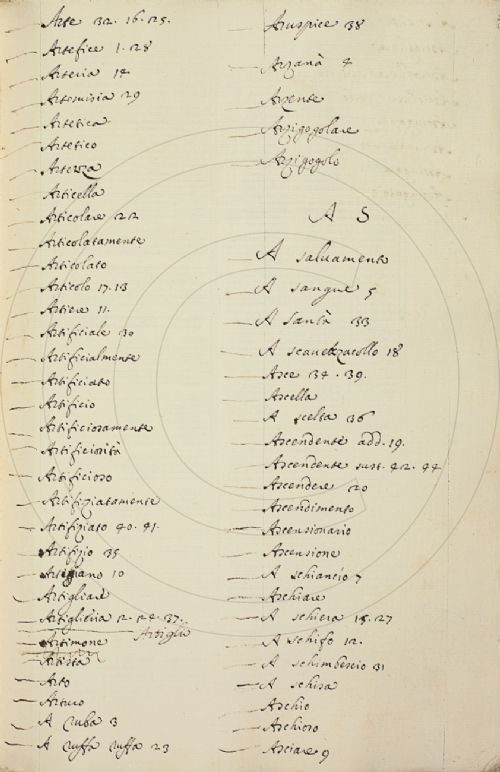 Arte 32. 16. 25.
Artefice 1. 28
Arteria 14
Artemisia 29
Artetica
Artetico
Artezza
Articella
Articolare 22
Articolatamente
Articolato
Articolo 17. 13
Artiere 11.
Artificiale 30
Artificialmente
Artificiato
Artificio
Artificiosamente
Artificiosità
Artificioso
Artifiziatamente
Artifiziato 40. 41.
Artifizio 35
Artigiano 10
Artigliare
Artiglieria 2. 24. 37.
Artiglio
Artimone
Artista
Arto
Arturo
A ruba 3
A ruffa raffa 23
Aruspice 38
Arzanà 4
Arzente
Arzigogolare
Arzigogolo
A S
A salvamento
A sangue 5
A sanità 33
A scavezzacollo 18
Asce 34. 39.
Ascella
A scelta 36
Ascendente add. 19.
Ascendente sust. 42. 44
Ascendere 20
Ascendimento
Ascensionario
Ascensione
A schiancio 7
Aschiare
A schiera 15. 27
A schifo 12.
A schimbescio 31
A schisa
Aschio
Aschioso
Asciare 9